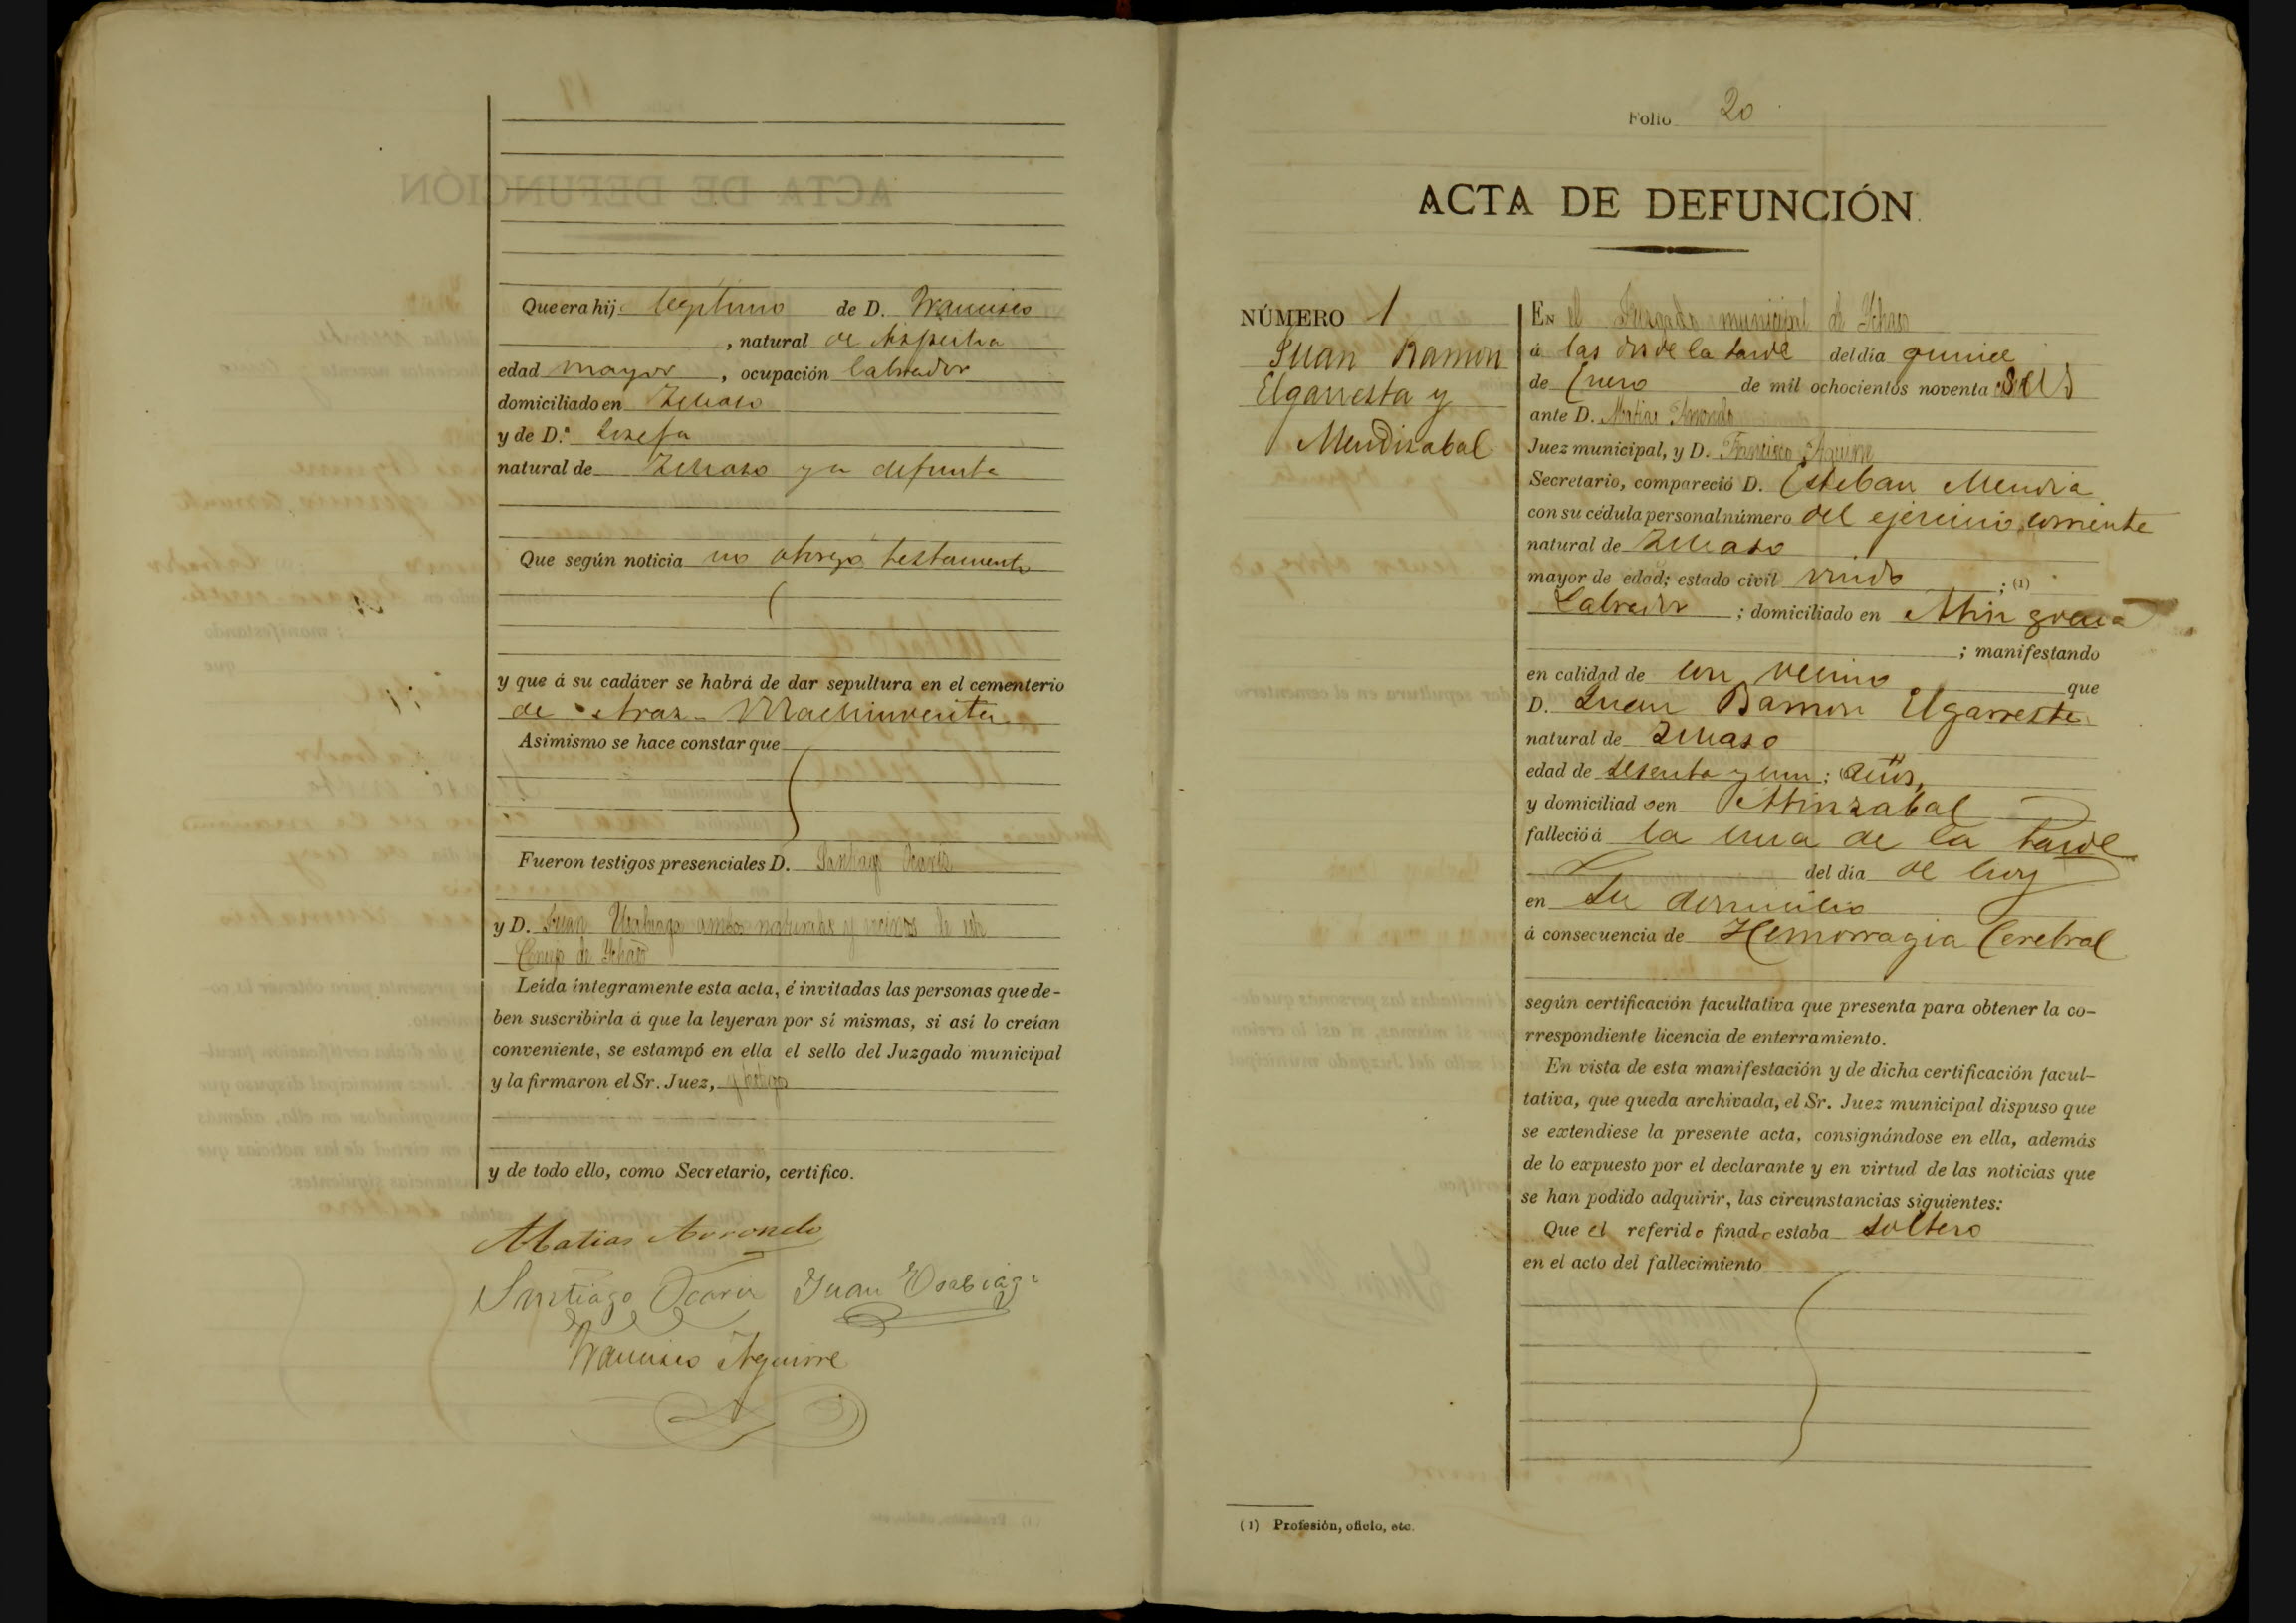 Que era hijo legitimo de D. Francisco
, natural de Azpeitia
edad mayor , ocupación labrador
domiciliado en Ichaso
y de D.ª Josefa
natural de Ichaso ya defunta
Que según noticia no otorgó testamento
y que á su cadáver se habrá de dar sepultura en el cementerio
de Machinventa
Asimismo se hace constar que
Fueron testigos presenciales D. Santiago Ocariz
y D. Juan Usabiaga ambos naturales y vecinos de este
Concejo de Ichaso
Leída íntegramente esta acta, é invitadas las personas que de-
ben suscribirla á que la leyeran por sí mismas, si así lo creían
conveniente, se estampó en ella el sello del Juzgado municipal
y la firmaron el Sr. Juez, y testigos
y de todo ello, como Secretario, certifico.
Matias Arrondo
Santiago Ocariz Juan Usabiaga
Francisco Aguirre
Folio 20
ACTA DE DEFUNCIÓN.
NÚMERO 1
Juan Ramon
Elgarresta y
Mendizabal
EN el Juzgado municipal de Ichaso
á las dos de la tarde del día quince
de Enero de mil ochocientos noventa seis
ante D. Matias Arrondo
Juez municipal, y D. Francisco Aguirre
Secretario, compareció D. Esteban Mendia
con su cédula personal número del ejercicio corriente
natural de Ichaso
mayor de edad; estado civil viudo ; (1)
Labrador ; domiciliado en
; manifestando
en calidad de un vecino que
D. Juan Ramon Elgarresta
natural de Ichaso
edad de sesenta y un ; años,
y domiciliado en
falleció á la una de la tarde
del día de hoy
en su domicilio
á consecuencia de Hemorragia Cerebral
según certificación facultativa que presenta para obtener la co-
rrespondiente licencia de enterramiento.
En vista de esta manifestación y de dicha certificación facul-
tativa, que queda archivada, el Sr. Juez municipal dispuso que
se extendiese la presente acta, consignándose en ella, además
de lo expuesto por el declarante y en virtud de las noticias que
se han podido adquirir, las circunstancias siguientes:
Que el referido finado estaba soltero
en el acto del fallecimiento
(1) Profesión, oficio, etc.